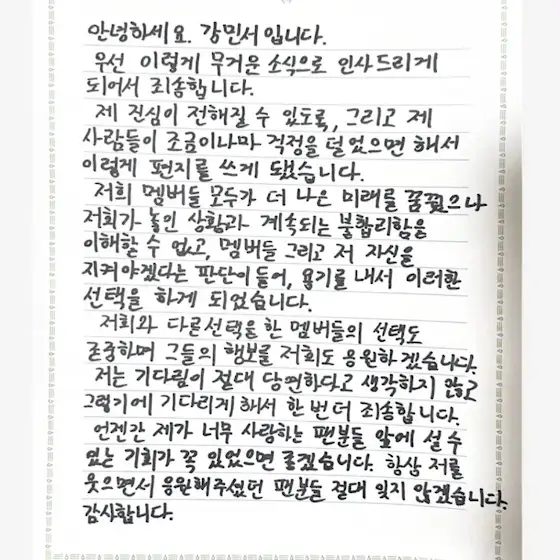 안녕하세요. 강민서입니다.
우선 이렇게 무거운 소식으로 인사드리게
되어서 죄송합니다.
제 진심이 전해질 수 있도록, 그리고 제
사람들이 조금이나마 걱정을 덜었으면 해서
이렇게 편지를 쓰게 됐습니다.
저희 멤버들 모두가 더 나은 미래를 꿈꿨으나
저희가 놓인 상황과 계속되는 불합리함을
이해할 수 없고, 멤버들 그리고 저 자신을
지켜야겠다는 판단이 들어, 용기를 내서 이러한
선택을 하게 되었습니다.
저희와 다른선택을 한 멤버들의 선택도
존중하며 그들의 행보를 저희도 응원하겠습니다.
저는 기다림이 절대 당연하다고 생각하지 않고
그렇기에 기다리게 해서 한 번 더 죄송합니다.
언젠간 제가 너무 사랑하는 팬분들 앞에 설 수
있는 기회가 꼭 있었으면 좋겠습니다. 항상 저를
웃으면서 응원해주셨던 팬분들 절대 잊지 않겠습니다.
감사합니다.